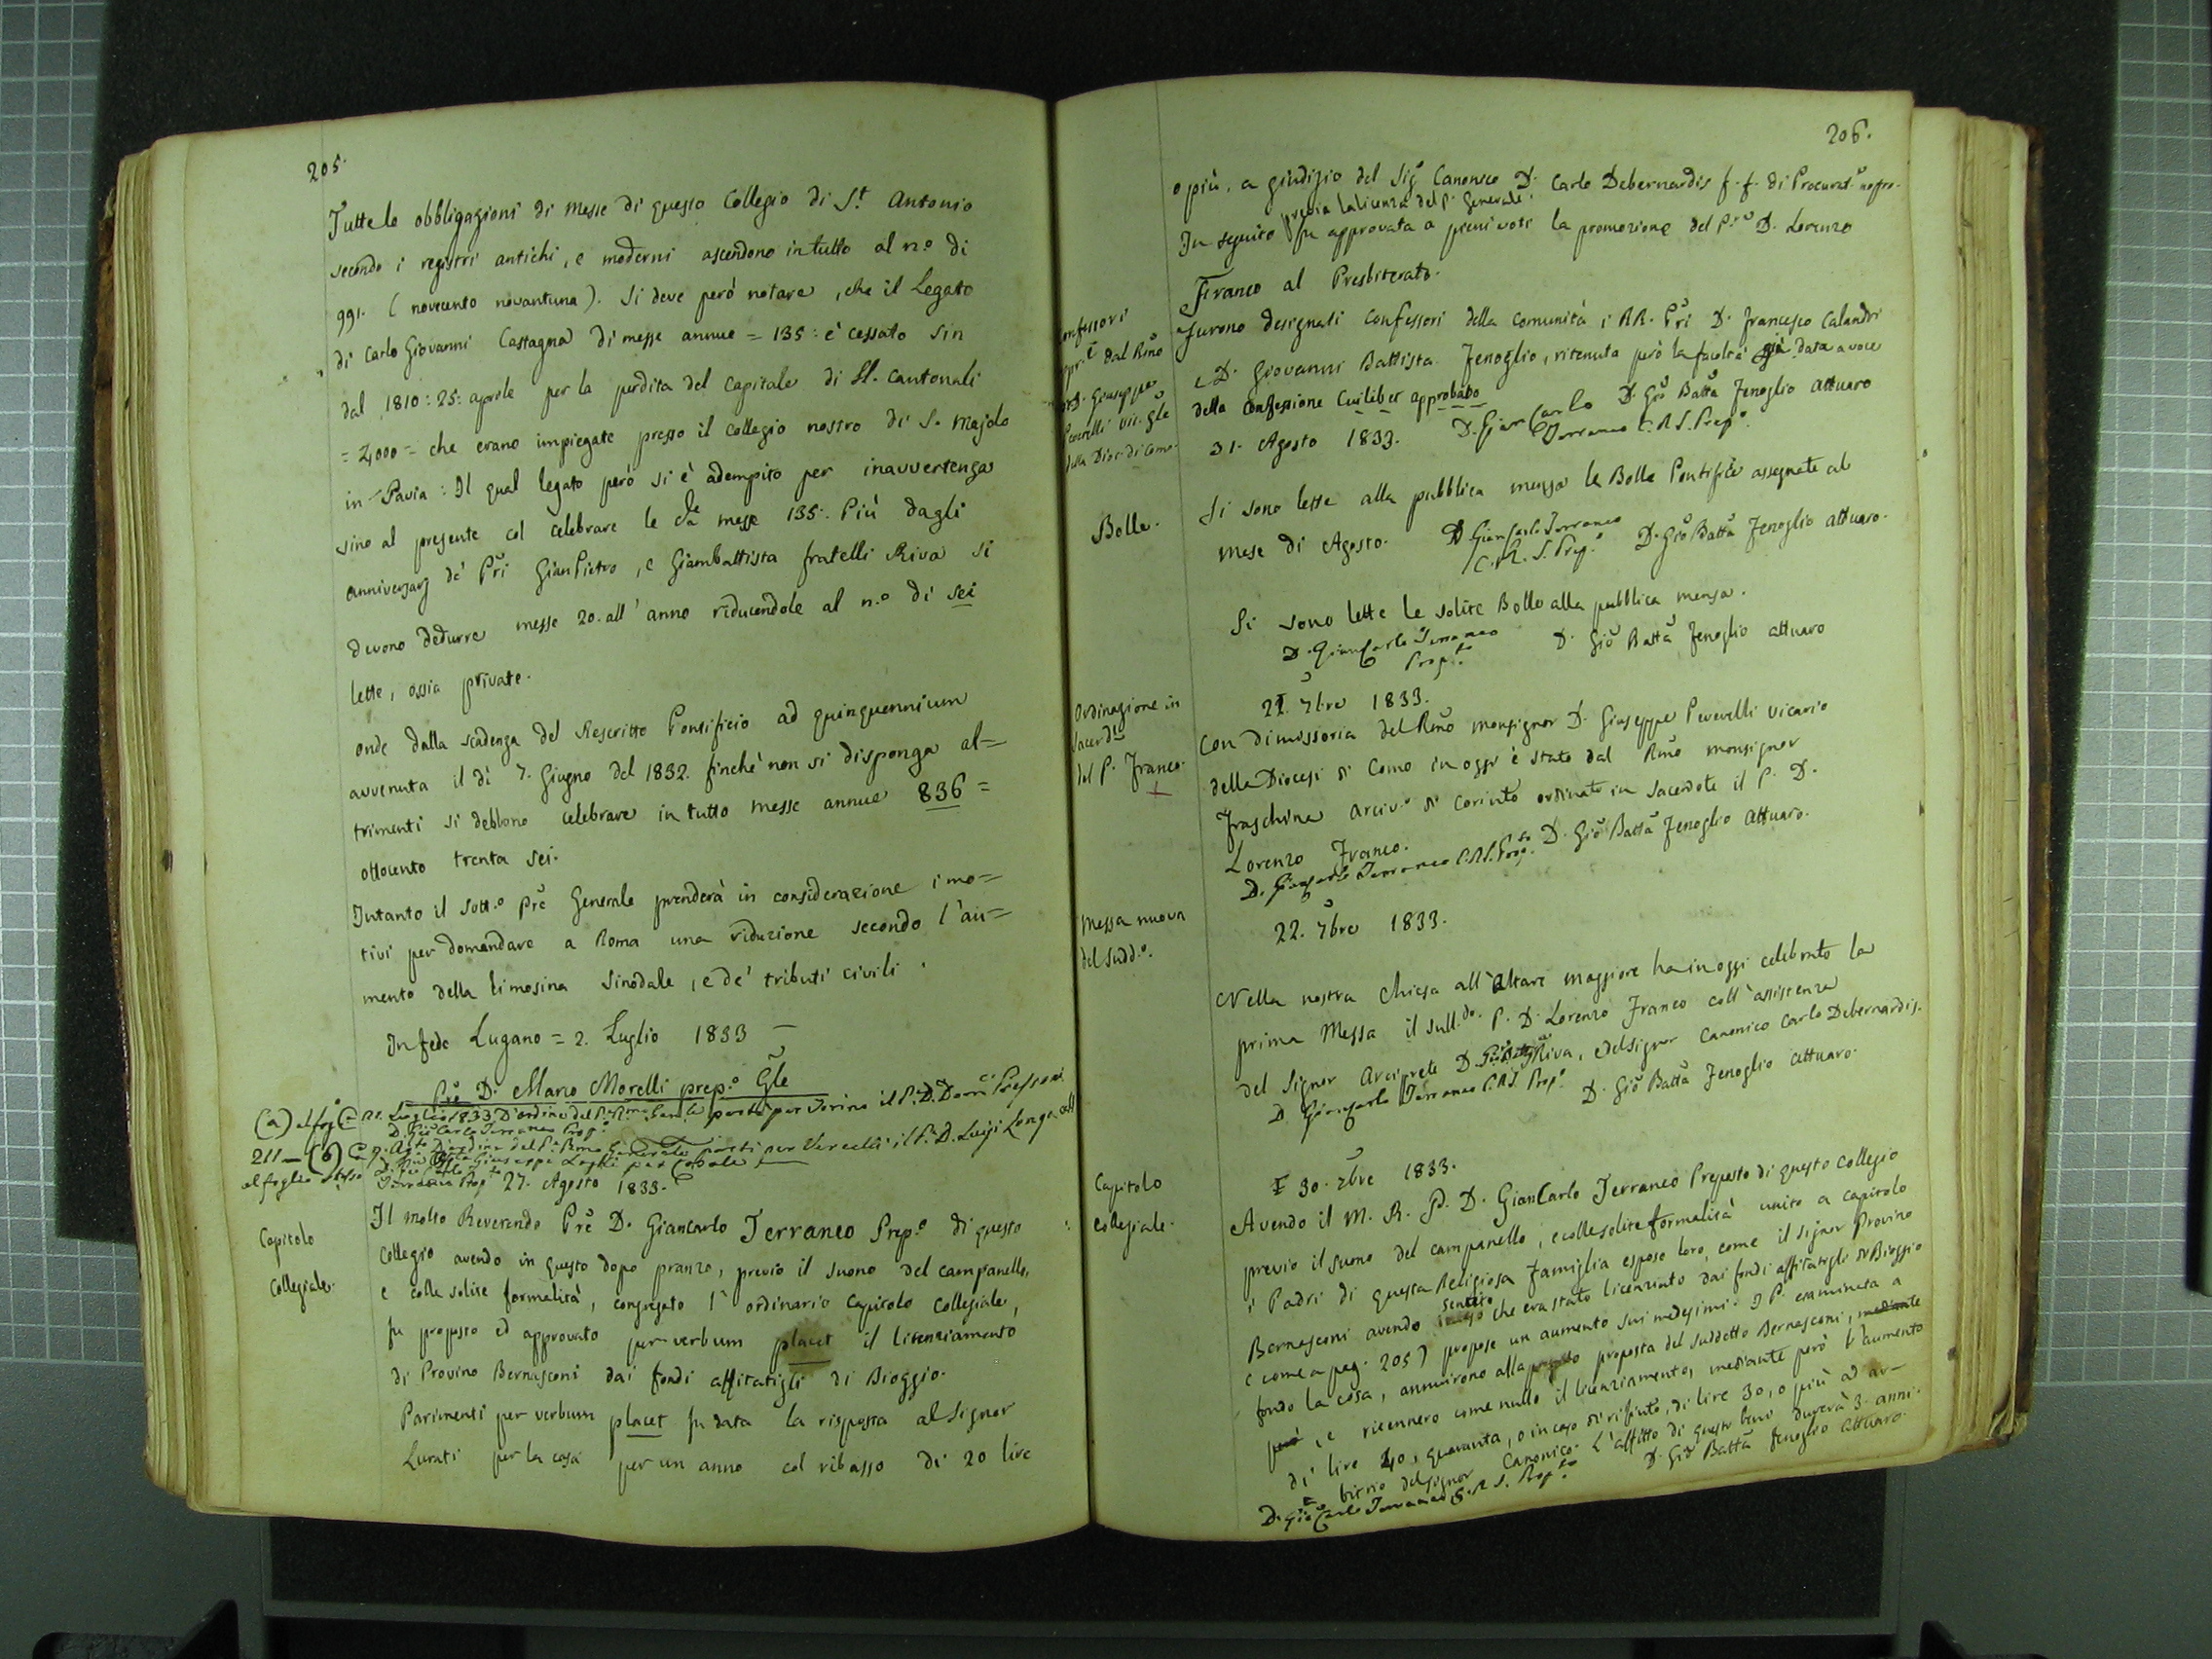 205.
Tutte le obbligazioni di Messe di questo Collegio di S.t Antonio
secondo i registri antichi, e moderni ascendono in tutto al n.o di
991. (novecento novantuna). Si deve però notare, che il Legato
di Carlo Giovanni Castagna di messe annue = 135: è cessato sin
dal 1810: 25: aprile per la perdita del Capitale di Ll. Cantonali
= 2,000 = che erano impiegate presso il Collegio nostro di S. Majolo
in Pavia: Il qual legato però si è adempito per inavvertenza
sino al presente col celebrare le d.e messe 135:. Più dagli
anniversarj de' Pri GianPietro, e Giambattista fratelli Riva si
devono dedurre messe 20. all'anno riducendole al n.o di sei
lette, ossia private.
onde dalla scadenza del Rescritto Pontificio ad quinquennium
avvenuta il dì 7. Giugno del 1832. finchè non si disponga al=
trimenti si debbono celebrare in tutto messe annue 836 =
ottocento trenta sei.
Intanto il sott.o Pre Generale prenderà in considerazione i mo=
tivi per domandare a Roma una riduzione secondo l'au=
mento della limosina Sinodale, e de' tributi civili.
In fede Lugano = 2. Luglio 1833 —
D. Marco Morelli prep.o Gle
(a) al fog. Luglio 1833. D'ordine del P. Rmo partì per Torino il P. D.
D. Gio Carlo Terraneo Prop.o
211 — (b) D'ordine del P. Rmo Generale partì per Vercelli il P. D. Luigi Longa
al foglio stesso Giuseppe
Terraneo Prop.to 27. Agosto 1833.
Capitolo
Collegiale.
Il Molto Reverendo Pre D. Giancarlo Terraneo Prep.o di questo
Collegio avendo in questo dopo pranzo, previo il suono del campanello,
e colle solite formalità, congregato l'ordinario Capitolo Collegiale,
fu proposto ed approvato per verbum placet il licenziamento
di Provino Bernasconi dai fondi affitatigli di Bioggio.
Parimenti per verbum placet fu data la risposta al Signor
Lurati per la casa per un anno col ribasso di 20 lire
206.
o più, a giudizio del Sig. Canonico D. Carlo Debernardis f. f. di Procurat.e nostro.
previa la licenza del P. Generale.
In seguito fu approvata a pieni voti la promozione del P. D. Lorenzo
Franco al Presbiterato.
Confessori
appr.i dal Rmo
D. Giuseppe
Peverelli Vic. Gle
della Dioc. di Como.
Furono designati Confessori della Comunità i RR. Pri D. Francesco Calandri
e D. Giovanni Battista Fenoglio, ritenuta però la facoltà già data a voce
della Confessione Cuilibet approbato
31. Agosto 1833. D. Gian Carlo D. Gio Batta Fenoglio attuaro
Terraneo C. R. S. Prep.o
Bolle.
Si sono lette alla pubblica mensa le Bolle Pontificie assegnate al
mese di Agosto. D. GianCarlo Terraneo D. Gio Batta Fenoglio attuaro.
C. R. S. Prep.o
Si sono lette le solite Bolle alla pubblica mensa.
D. GianCarlo Terraneo D. Gio Batta Fenoglio attuaro
Prop.to
Ordinazione in
Sacerd.te
del P. Franco.
21. 7bre 1833.
Con dimissoria del Rmo Monsignor D. Giuseppe Peverelli Vicario
della Diocesi di Como in oggi è stato dal Rmo Monsignor
Fraschina Arciv.o di Corinto ordinato in Sacerdote il P. D.
Lorenzo Franco.
D. Giancarlo Terraneo C.R.S. Prop.to D. Gio Batta Fenoglio Attuaro.
Messa nuova
del Sudd.o.
22. 7bre 1833.
Nella nostra Chiesa all'Altare maggiore ha in oggi celebrato la
prima Messa il sull.do P. D. Lorenzo Franco coll'assistenza
del Signor Arciprete D. Riva, e del Signor Canonico Carlo Debernardis.
D. Giancarlo Terraneo C.R.S. Prop.o D. Gio Batta Fenoglio attuaro.
Capitolo
Collegiale.
30. xbre 1833.
Avendo il M. R. P. D. GianCarlo Terraneo Preposto di questo Collegio
previo il suono del campanello, e colle solite formalità unito a capitolo
i Padri di questa Religiosa Famiglia espose loro, come il Signor Provino
Bernasconi avendo sentito che era stato licenziato dai fondi affitatigli di Bioggio
(come a pag. 205) propose un aumento sui medesimi. I P. esaminata a
fondo la cosa, annuirono alla proposta del suddetto Bernasconi, mediante
però, e ritennero come nullo il licenziamento, mediante però l'aumento
di lire 40, quaranta, o in caso di rifiuto, di lire 30, o più ad ar—
bitrio del Signor Canonico. L'affitto di questi beni durerà 3. anni.
D. Gio Carlo Terraneo C. R. S. Prop.to D. Gio Batta Fenoglio attuaro.